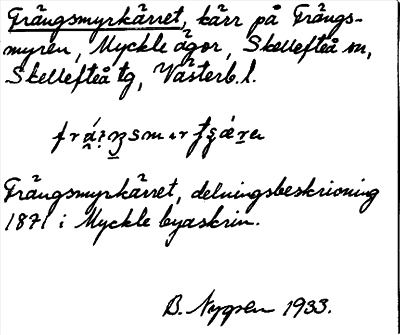 Trångsmyrkärret, kärr på Trångs-
myren, Myckle ägor, Skellefteå sn,
Skellefteå tg, Västerb. l.
Trångsmyrkärret, delningsbeskrivning
1871 i Myckle byaskrin.
B. Nygren 1933.